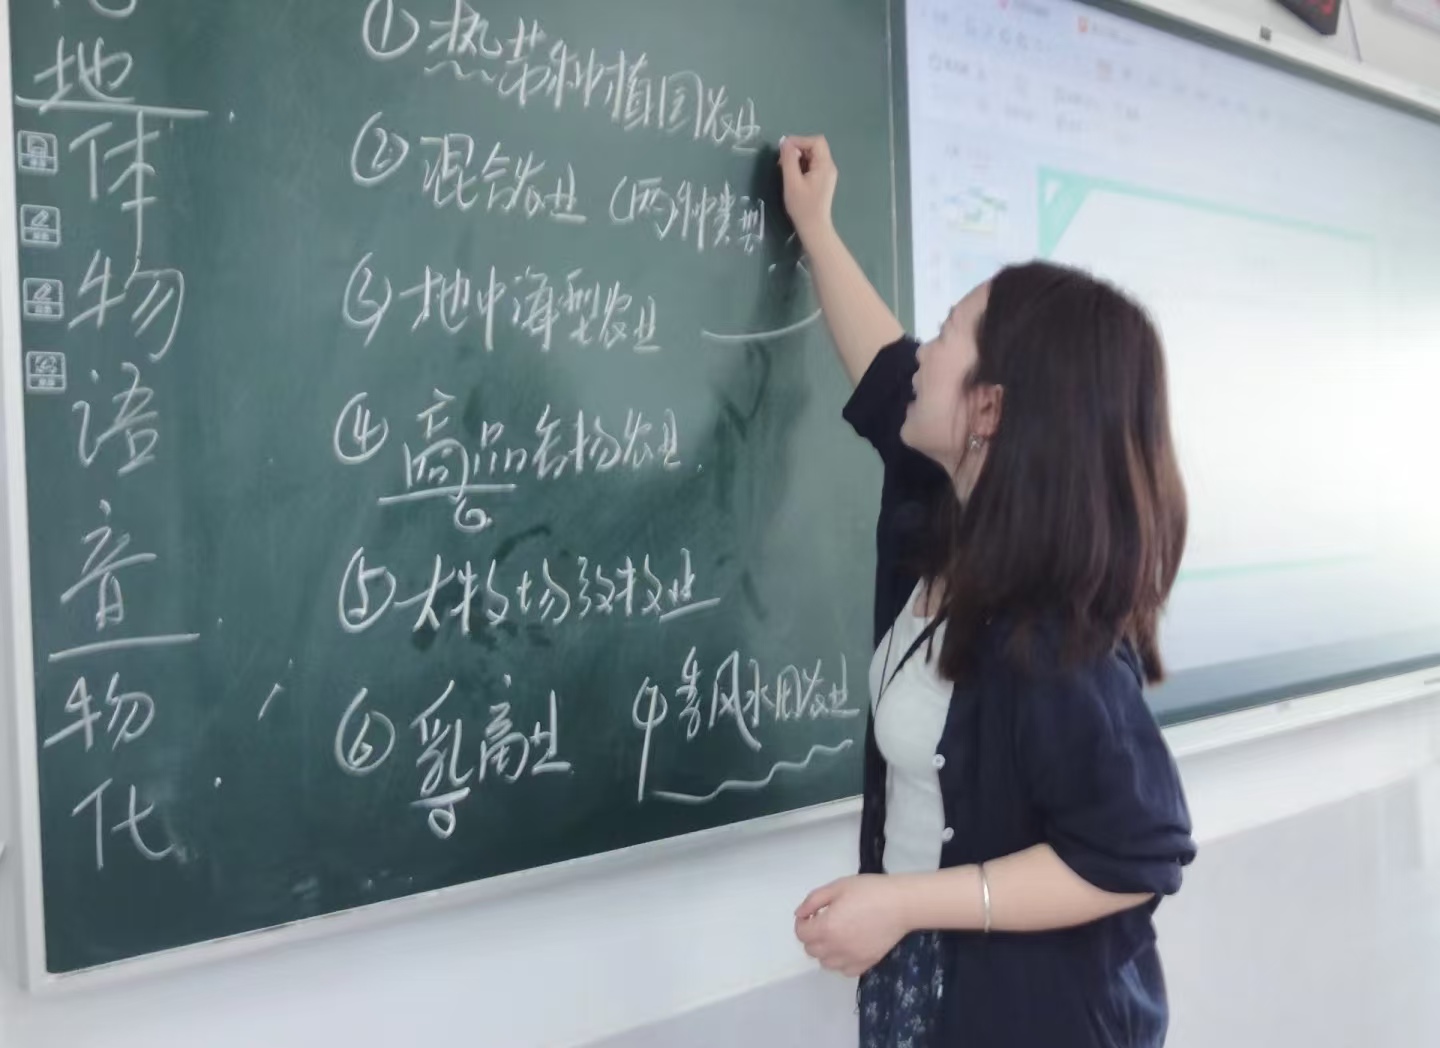 地
体
物
语
音
物
化
①热带种植园农业
②混合农业（两种类型
③地中海型农业
④商品谷物农业
⑤大牧场放牧业
⑥乳畜业
季风水田农业